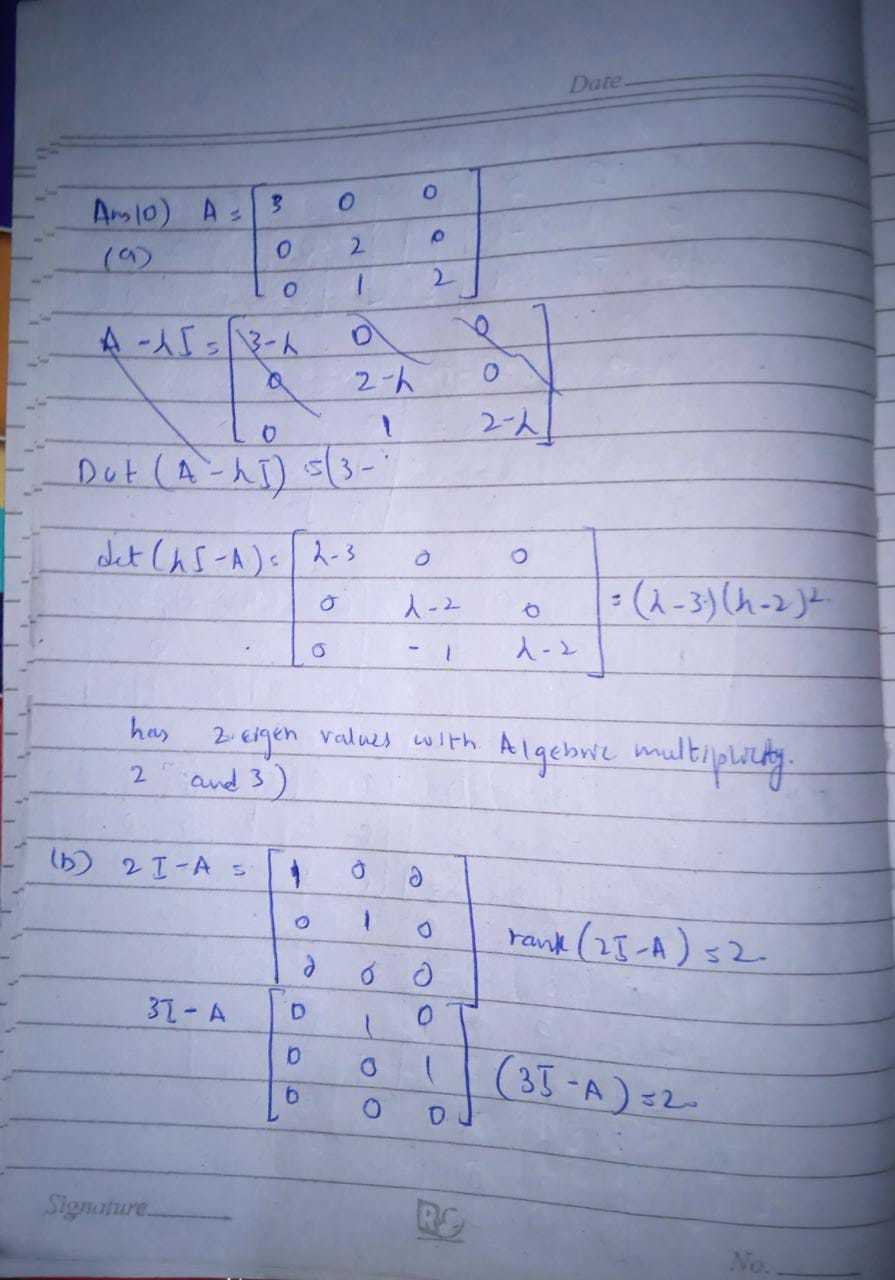 Date
Ans10) A = [3 0 0
(a) 0 2 0
0 1 2]
A - λI = [3-λ 0 0
0 2-λ 0
0 1 2-λ]
Det (A - λI) = (3-
det (λI - A) = [λ-3 0 0
0 λ-2 0 = (λ-3)(λ-2)²
0 -1 λ-2]
has 2 eigen values with Algebric multiplicity.
2 and 3)
(b) 2I - A = [1 0 0
0 1 0 rank (2I - A) = 2
0 0 0]
3I - A [0 1 0
0 0 1 (3I - A) = 2
0 0 0]
Signature
RC
No.